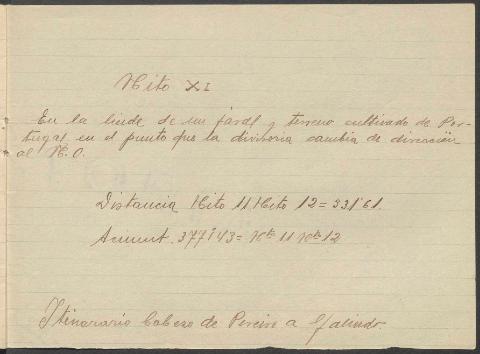 Hito XI
En la linde de un jaral y terreno cultivado de Por-
tugal en el punto que la divisoria cambia de dirección
al N.O.
Distancia Hito 11 Hito 12 = 331'61
Acimut. 377'43 = Hto 11 Hto 12
Itinarario Cabezo de Pereiro a Galindo.